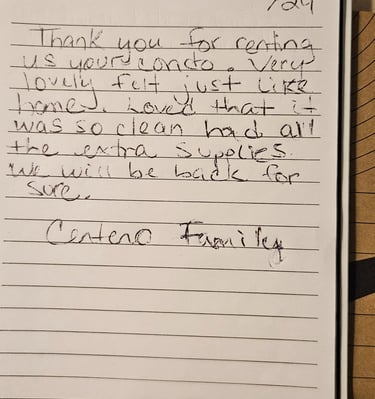 /24
Thank you for renting
us your condo. Very
lovely felt just like
home. Loved that it
was so clean had all
the extra supplies.
We will be back for
sure.
Centeno Family